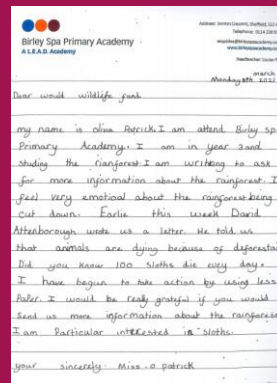 Birley Spa Primary Academy
A L.E.A.D. Academy
Address: Jermyn Crescent, Sheffield, S12 4
Telephone: 0114 239
Headteacher: Louise
march
Monday 8th 2021
Dear would wildlife fund
my name is olivia Patrick. I am attend Birley spa
Primary Academy. I am in year 3 and
studing the rianforest. I am writhing to ask
for more information about the rainforest. I
feel very emotional about the rainforest being
cut down. Earlie this week David
Attenborough wrote us a letter. He told us
that animals are dying because of deforesta
Did you know 100 sloths die evey day.
I have begun to take action by using less
Paper. I would be realy grateful if you would
Send us more information about the rainfores
I am Particular interested in sloths.
your sincerely. Miss. o patrick